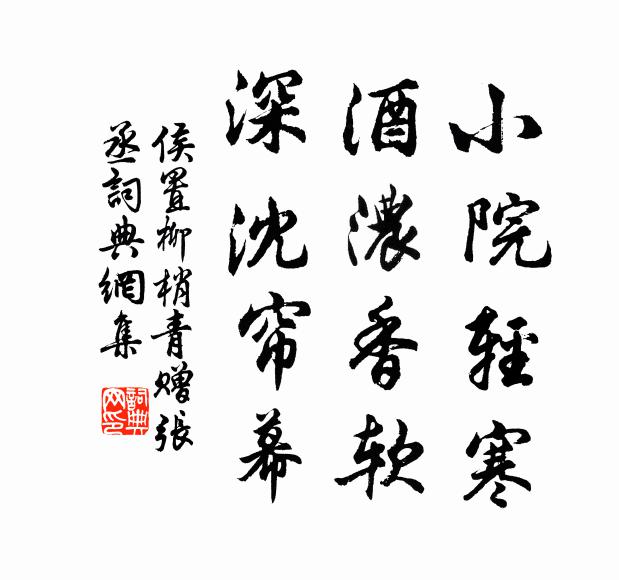 小院輕寒
酒濃香軟
深沈帘幕
侯置柳梢青赠張
丞詞典網集
詞典
网印